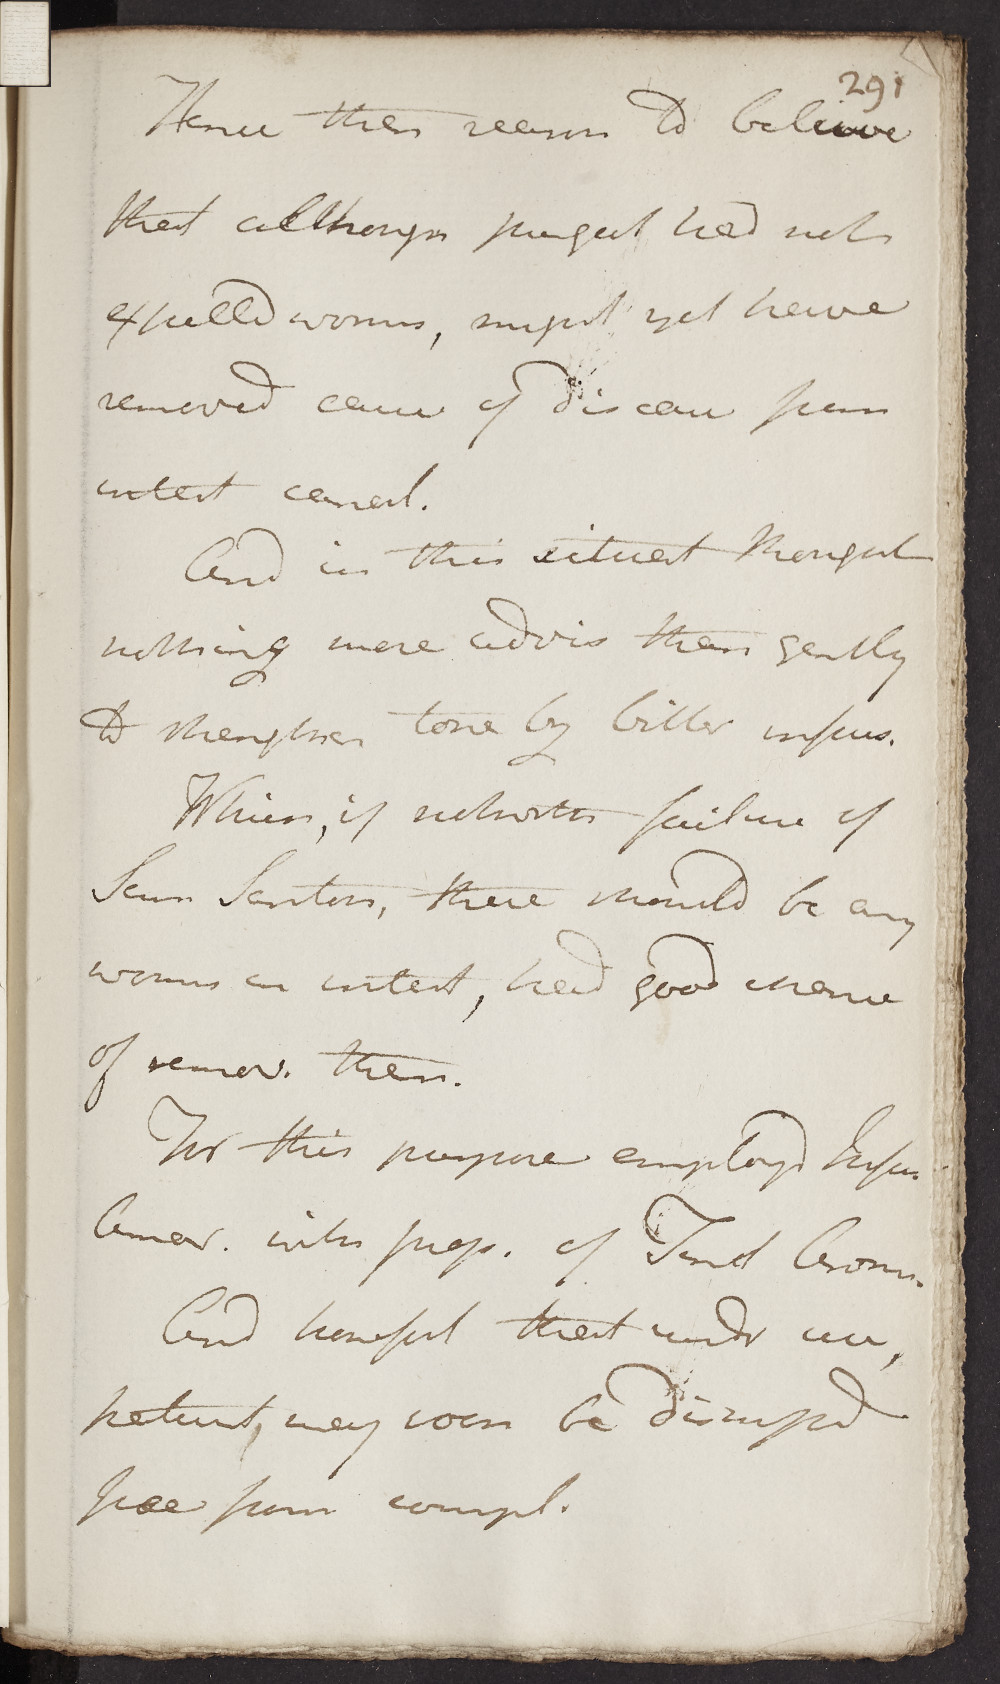 291
Hence then reason to believe
that although purgat had not
expelld worms, might yet have
removed cause of disease from
intest canal.
And in this situat thought
nothing more advis than gently
to strengthen tone by bitter infus.
Which, if notwith failure of
Sem Santon, there should be any
worms in intest, had good chance
of remov. them.
For this purpose employd Infus
Amar. with prep. of Tinct Arom.
And hopeful that under use,
patient, may soon be dismissd
free from compl.